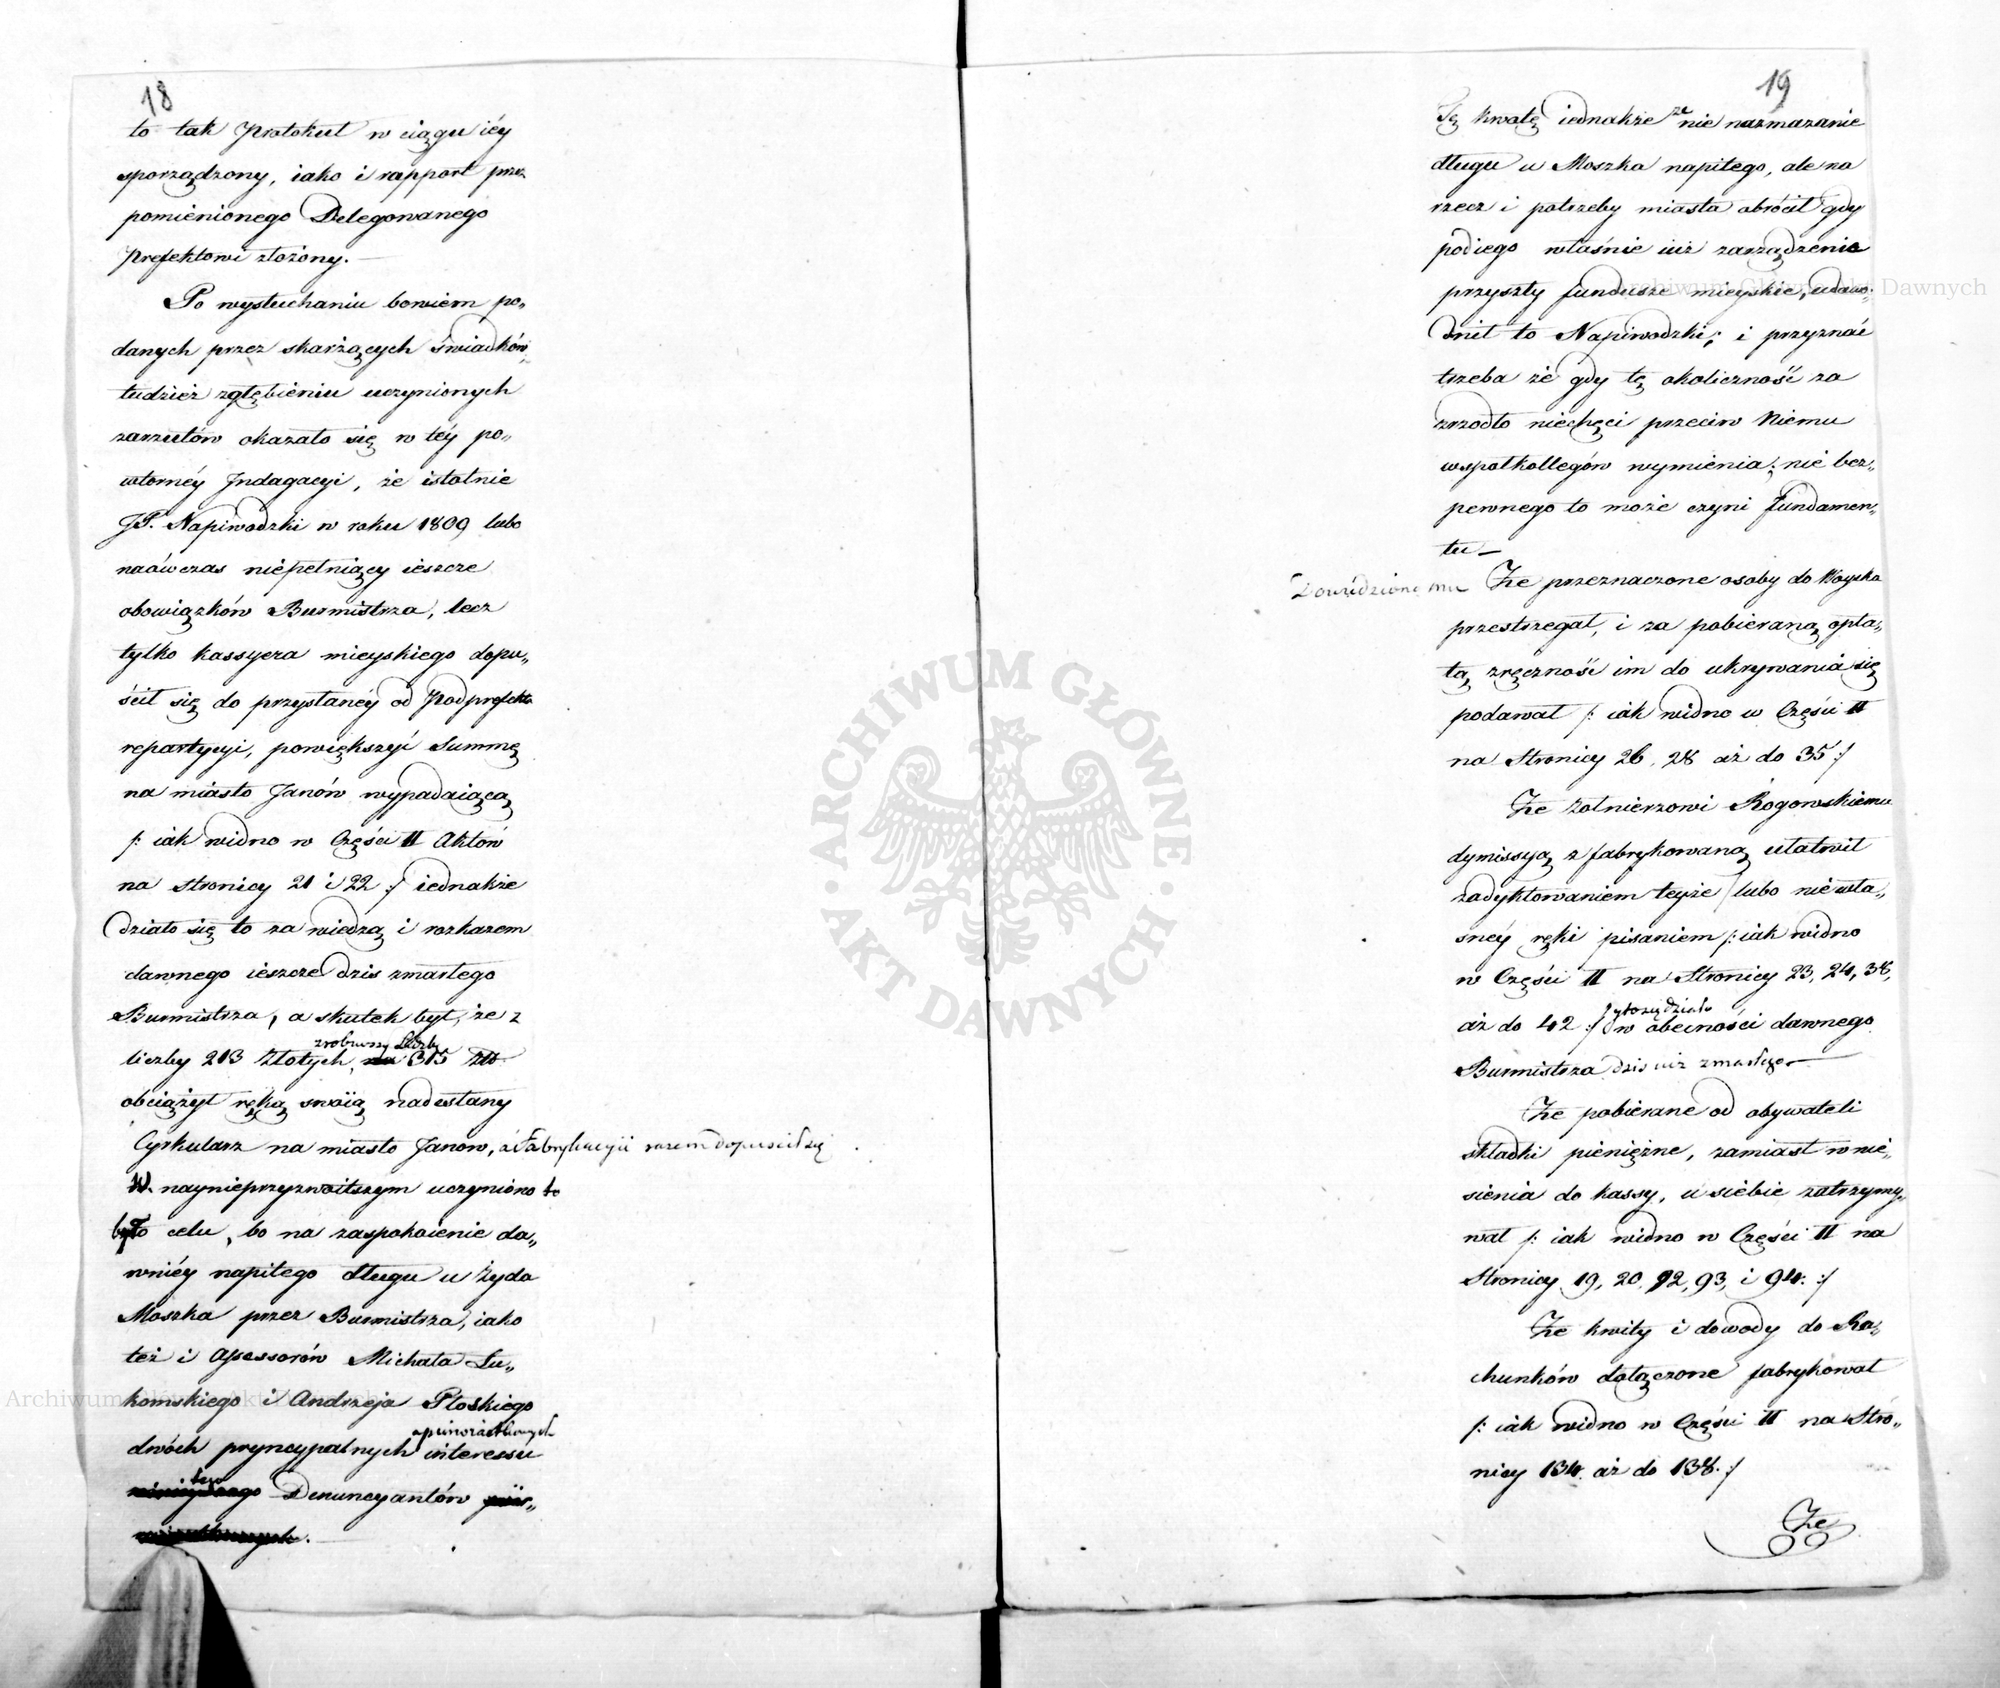 18
to tak Protokuł w ciągu iéy
sporządzony, iako i rapport przez
pomienionego Delegowanego
Prefektowi złożony. —
Po wysłuchaniu bowiem po„
danych przez skarżących świadków,
tudzież zgłębieniu uczynionych
zarzutów okazało się w téy po„
wtornéy Indagacyi, że istotnie
JP. Napiwodzki w roku 1809 lubo
naówczas niepełniący ieszcze
obowiązków Burmistrza, lecz
tylko kassyera mieyskiego dopu„
ścił się do przysłanéy od Podprefekta
repartycyi, powiększyć Summę
na miasto Janów wypadaiącą
/: iak widno w Części II Aktów
na stronicy 21 i 22 :/ iednakże
działo się to za wiedzą i rozkazem
dawnego ieszcze dzis zmarłego
Burmistrza, a skutek był, że z
zrobiwszy liczbę
liczby 213 Złotych, na 315 złł
obciążył ręką swoią nadesłany
Cyrkularz na miasto Janow, a Fabrykacyii razem dopuścił się
W. naynieprzyzwoitszym uczyniono to
było celu, bo na zaspokoienie da„
wniéy napitego długu u Żyda
Moszka przez Burmistrza, iako
też i Assessorów Michała Łu„
komskiego i Andrzeja Płoskiego
dwóch pryncypalnych interessu
tego
Denuncyantów
19
Tę kwotę iednakże że nie na zmazanie
długu u Moszka napitego, ale na
rzecz i potrzeby miasta obrócił gdy
pod iego właśnie iuż zarządzenie
przyszły fundusze mieyskie, udowo„
dnił to Napiwodzki; i przyznać
trzeba że gdy tę okoliczność za
zrzodło niechęci przeciw Niemu
wspołkollegów wymienia, nie bez„
pewnego to może czyni fundamen„
tu —
Dowiedziono mu Że przeznaczone osoby do Woyska
przestrzegał, i za pobieraną opła„
tą zręczność im do ukrywania się
podawał /: iak widno w Części II
na Stronicy 26, 28 aż do 35 :/
Że żołnierzowi Rogowskiemu
dymissyą zfabrykowaną ułatwił
zadyktowaniem teyże lubo nie wła„
snéy ręki pisaniem /: iak widno
w Części II na Stronicy 23, 24, 38,
aż do 42 :/ w obecności dawnego
Burmistrza dzis iuż zmarłego —
Że pobierane od obywateli
składki pieniężne, zamiast wnie„
sienia do kassy, u siebie zatrzymy„
wał /: iak widno w Części II na
Stronicy 19, 20, 92, 93, i 94. :/
Że kwity i dowody do Ra„
chunków dołączone fabrykował
/: iak widno w Części II na Stro„
nicy 134. aż do 138. :/
Że
ARCHIWUM GŁÓWNE · AKT DAWNYCH ·
Archiwum Główne Akt Dawnych
Archiwum Główne Akt Dawnych